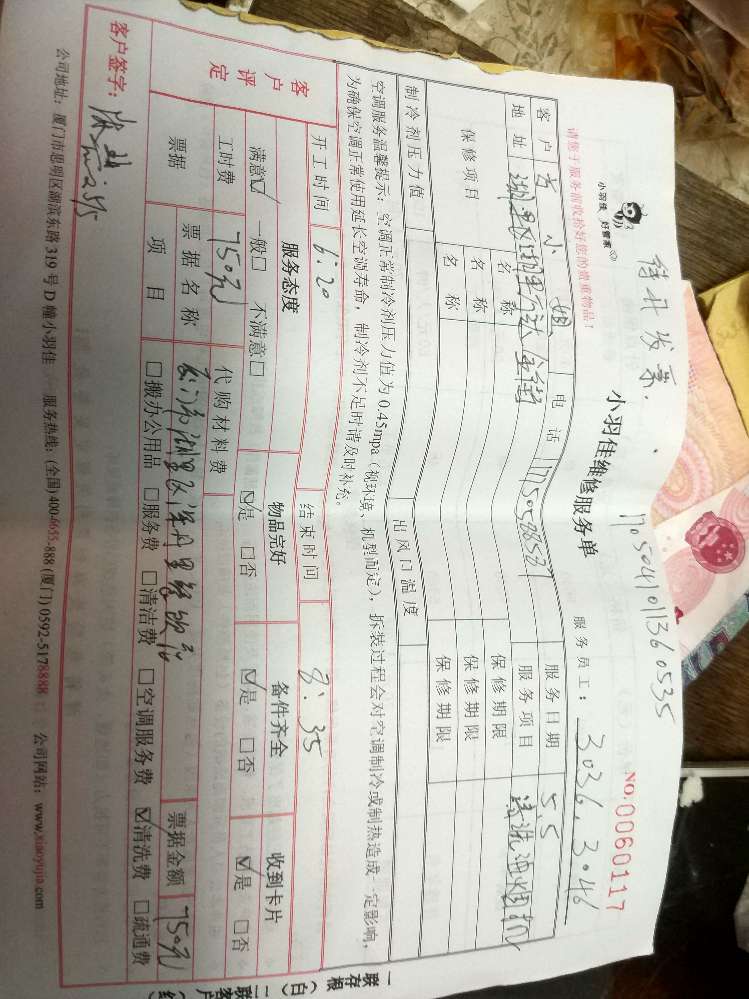 待开发票.
1705041011360535
小羽佳 好管家
小羽佳维修服务单
NO:0060117
请您于服务前收拾好您的贵重物品!
服务员工: 3036.3046
客户 小姐 电话 服务日期 5.5
地址 湖里区 服务项目 清洗油烟机
保修项目 名称 保修期限
名称 保修期限
名称 保修期限
制冷剂压力值 出风口温度
空调服务温馨提示:空调正常制冷剂压力值为0.45mpa(视环境、机型而定),拆装过程会对空调制冷或制热造成一定影响,
为确保空调正常使用延长空调寿命,制冷剂不足时请及时补充。
开工时间 6:20 结束时间 8:35
客户评定 服务态度 物品完好 备件齐全 收到卡片
满意☑ 一般□ 不满意□ ☑是 □否 ☑是 □否 ☑是 □否
工时费 750元 代购材料费
票据 票据名称 票据金额 750元
项目 □搬办公用品 □服务费 □清洁费 □空调服务费 ☑清洗费 □疏通费
客户签字:
公司地址:厦门市思明区湖滨东路319号D幢小羽佳 服务热线:(全国)400-6655-888 (厦门)0592-5178888 公司网站:www.xiaoyujia.com
一联存根(白) 二联客户